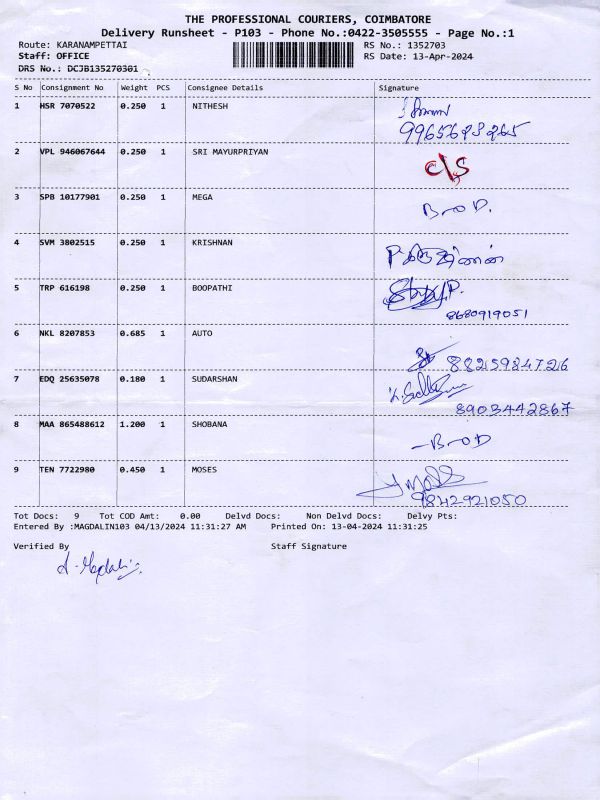 THE PROFESSIONAL COURIERS, COIMBATORE
Delivery Runsheet - P103 - Phone No.:0422-3505555 - Page No.:1
Route: KARANAMPETTAI RS No.: 1352703
Staff: OFFICE RS Date: 13-Apr-2024
DRS No.: DCJB135270301
S No Consignment No Weight PCS Consignee Details Signature
1 HSR 7070522 0.250 1 NITHESH
9965623265
2 VPL 946067644 0.250 1 SRI MAYURPRIYAN C/S
3 SPB 10177901 0.250 1 MEGA BroD.
4 SVM 3802515 0.250 1 KRISHNAN
5 TRP 616198 0.250 1 BOOPATHI
8680919051
6 NKL 8207853 0.685 1 AUTO
8825984726
7 EDQ 25635078 0.180 1 SUDARSHAN
8903442867
8 MAA 865488612 1.200 1 SHOBANA -BroD
9 TEN 7722980 0.450 1 MOSES
9842921050
Tot Docs: 9 Tot COD Amt: 0.00 Delvd Docs: Non Delvd Docs: Delvy Pts:
Entered By :MAGDALIN103 04/13/2024 11:31:27 AM Printed On: 13-04-2024 11:31:25
Verified By Staff Signature